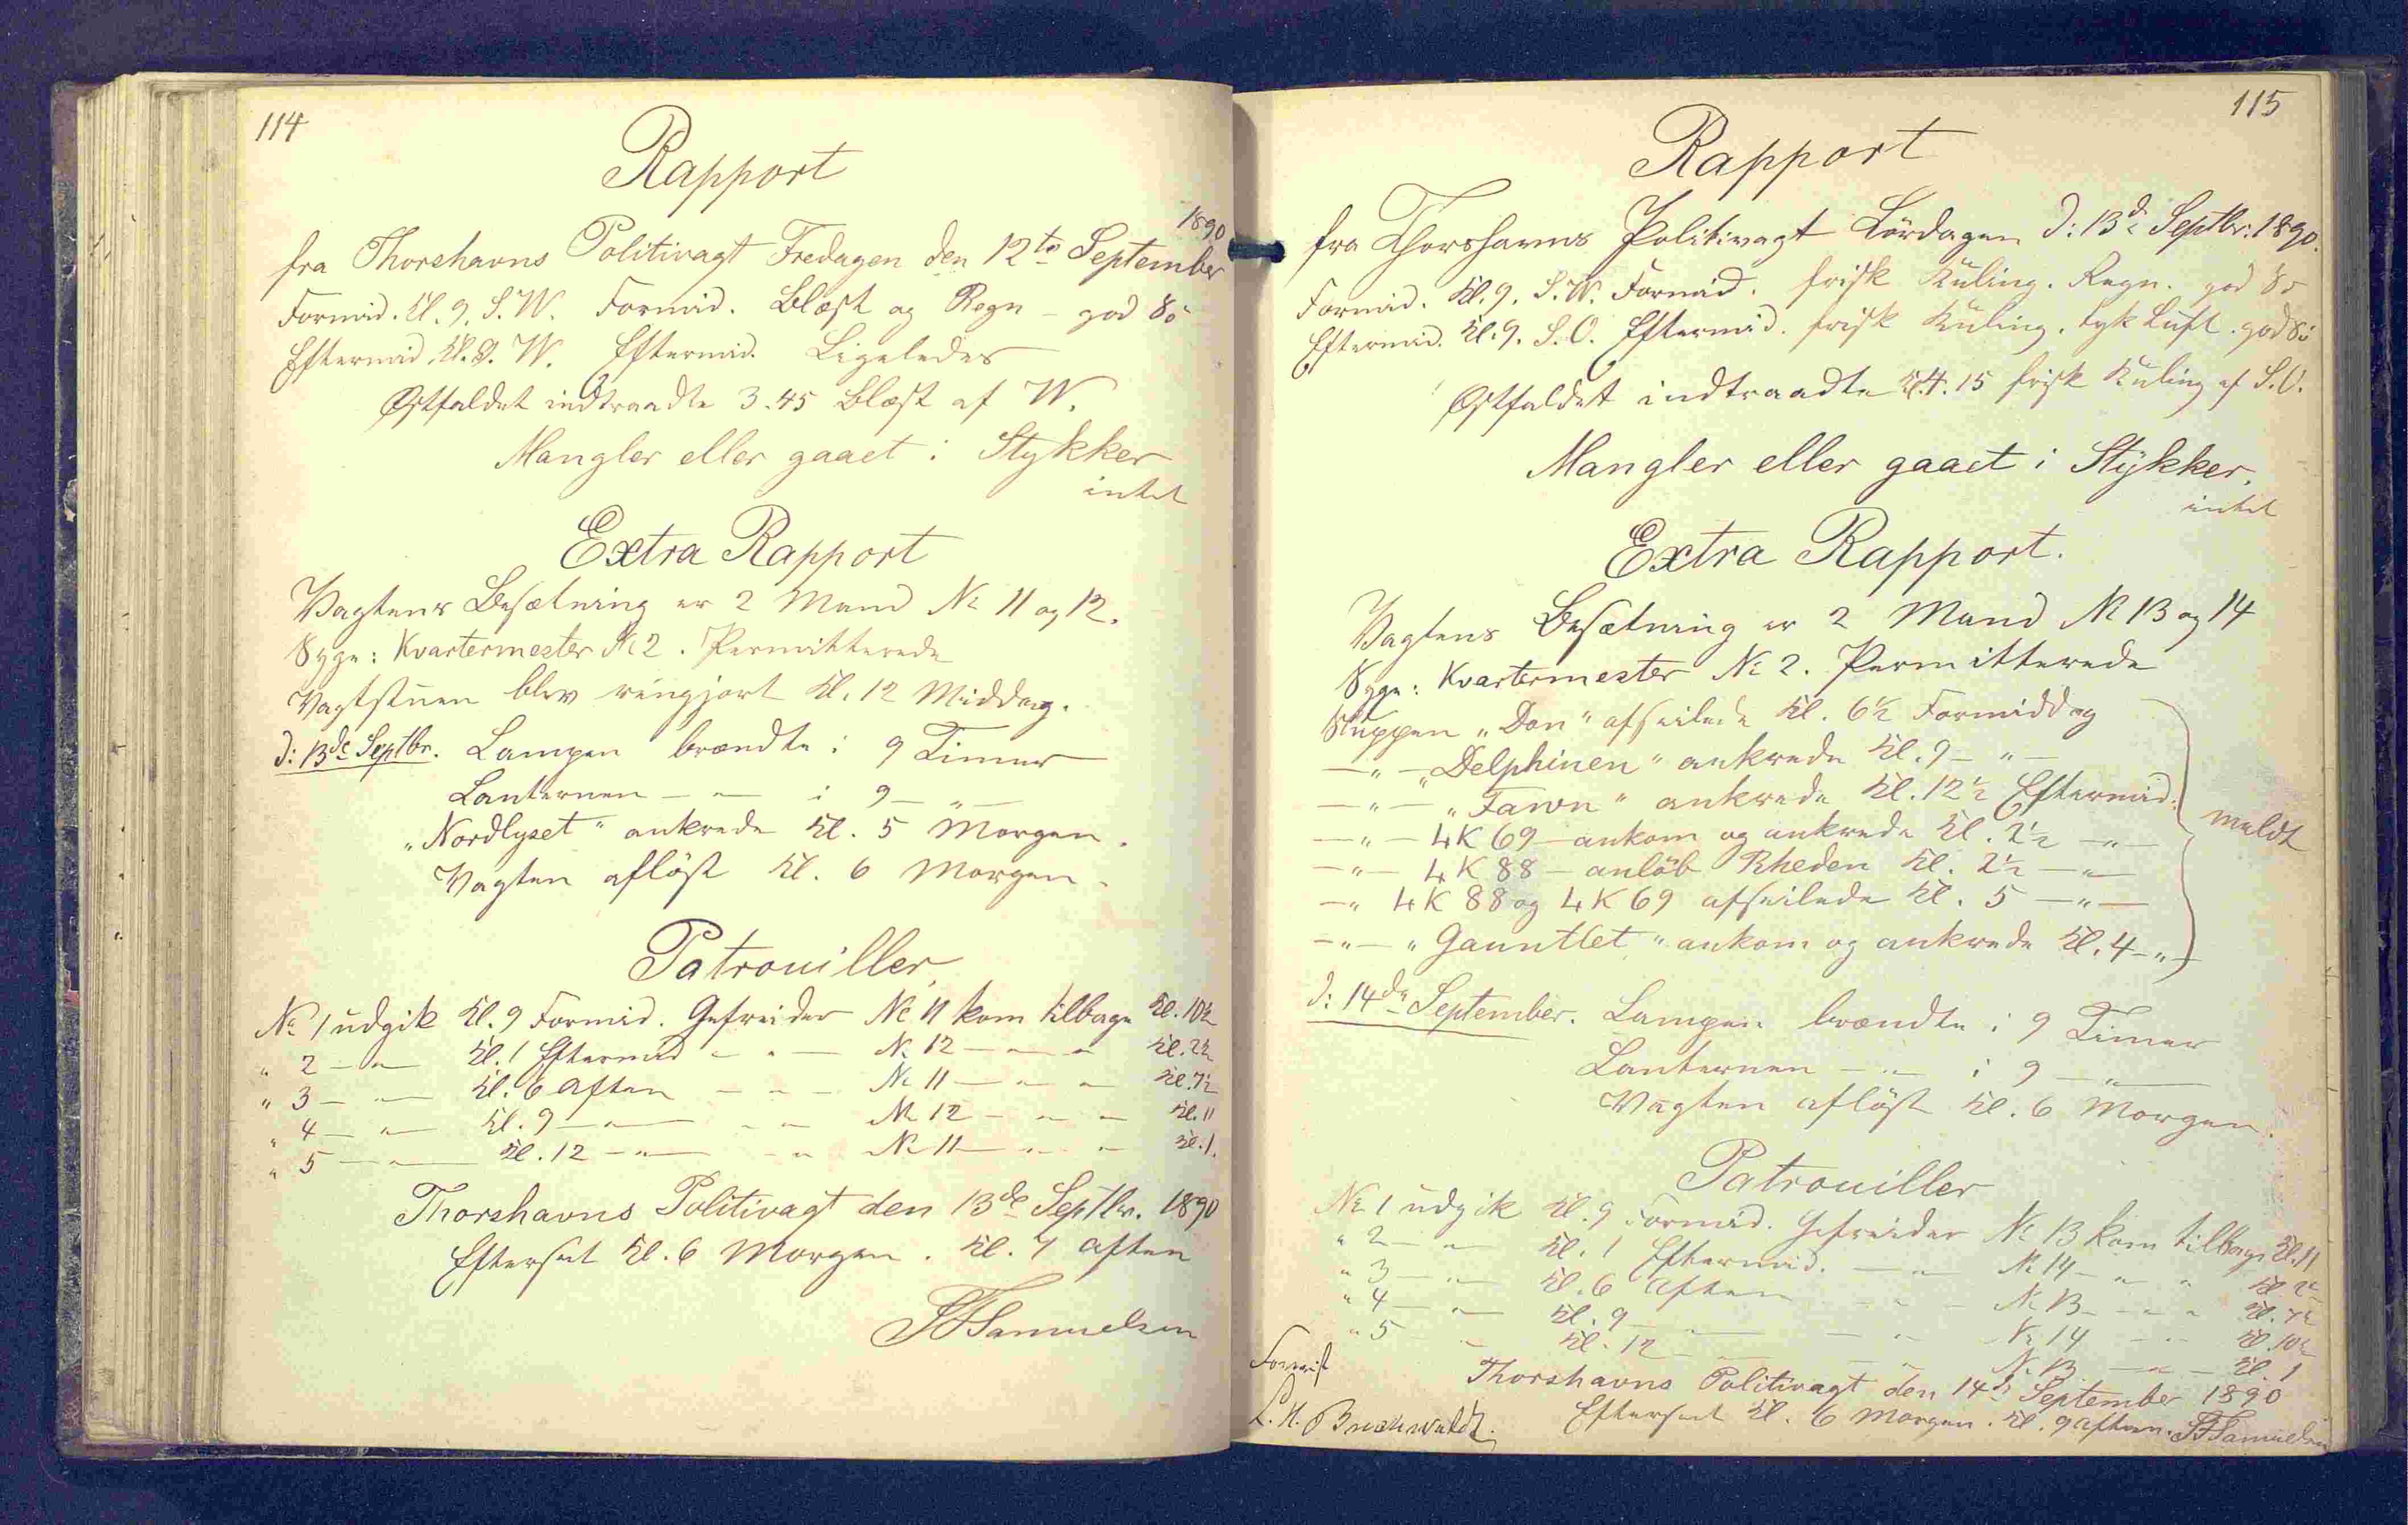 114
Rapport
1890
fra Thorshavns Politivagt Fredagen den 12te September
Formid. Kl. 9. S.W. Formid. Blæst og Regn - god Sö
Eftermid. Kl. 9. W. Eftermid. Ligeledes
Østfaldet indtraadte 3.45 Blæst af W.
Mangler eller gaaet i Stykker
intet
Extra Rapport
Vagtens Besætning er 2 Mand No 11 og 12.
Syge: Kvartermester No 2. Permitterede
Vagtstuen blev rengjort Kl. 12 Middag.
d: 13de Septbr. Lampen brændte i 9 Timer
Lanternen — " — i 9 — " —
"Nordlyset" ankrede Kl. 5 Morgen.
Vagten aflöst Kl. 6 Morgen.
Patrouiller
No 1 udgik Kl. 9 Formid. Gefreider No 11 kom tilbage Kl. 10½
" 2 — " — Kl. 1 Eftermid — " — No 12 — " — " Kl. 2½
" 3 — " — Kl. 6 Aften — " — No 11 — " — " Kl. 7½
" 4 — " — Kl. 9 — " — — " — No 12 — " — " Kl. 11
" 5 — " — Kl. 12 — " — — " — No 11 — " — " Kl. 1.
Thorshavns Politivagt den 13de Septbr. 1890
Efterset Kl. 6 Morgen. Kl. 7 Aften
Samuelsen
115
Rapport
fra Thorshavns Politivagt Lördagen d: 13de Septbr: 1890.
Formid. Kl. 9. S.W. Formid. frisk Kuling. Regn. god Sö
Eftermid. Kl. 9. S.O. Eftermid. frisk Kuling. tyk Luft. god Sö
Østfaldet indtraadte Kl. 4.15 frisk Kuling af S.O.
Mangler eller gaaet i Stykker.
intet
Extra Rapport.
Vagtens Besætning er 2 Mand No 13 og 14
Syge: Kvartermester No 2. Permitterede
Sluppen "Don" afseilede Kl. 6½ Formiddag
— " — "Delphinen" ankrede Kl. 9 — " —
— " — "Fawn" ankrede Kl. 12½ Eftermid.
— " — LK 69 — ankom og ankrede Kl. 2½ — " —
meldt
— " — LK 88 — anlöb Rheden Kl. 2½ — " —
— " LK 88 og LK 69 afseilede Kl. 5 — " —
— " — "Gauntlet" ankom og ankrede Kl. 4 — " —
d: 14de September. Lampen brændte i 9 Timer
Lanternen — " — i 9 — " —
Vagten aflöst Kl. 6 Morgen.
Patrouiller
No 1 udgik Kl. 9 Formid. Gefreider No 13 kom tilbage Kl. 11
" 2 — " — Kl. 1 Eftermid. — " — No 14 — " — " Kl. 2½
" 3 — " — Kl. 6 Aften — " — No 13 — " — " Kl. 7½
" 4 — " — Kl. 9 — " — — " — No 14 — " — Kl. 10½
" 5 — " — Kl. 12 — " — — " — No 13 — " — Kl. 1
Thorshavns Politivagt den 14de September 1890
Efterset Kl. 6 Morgen. Kl. 9 Aften. Samuelsen
Forevist
Buchwaldt.